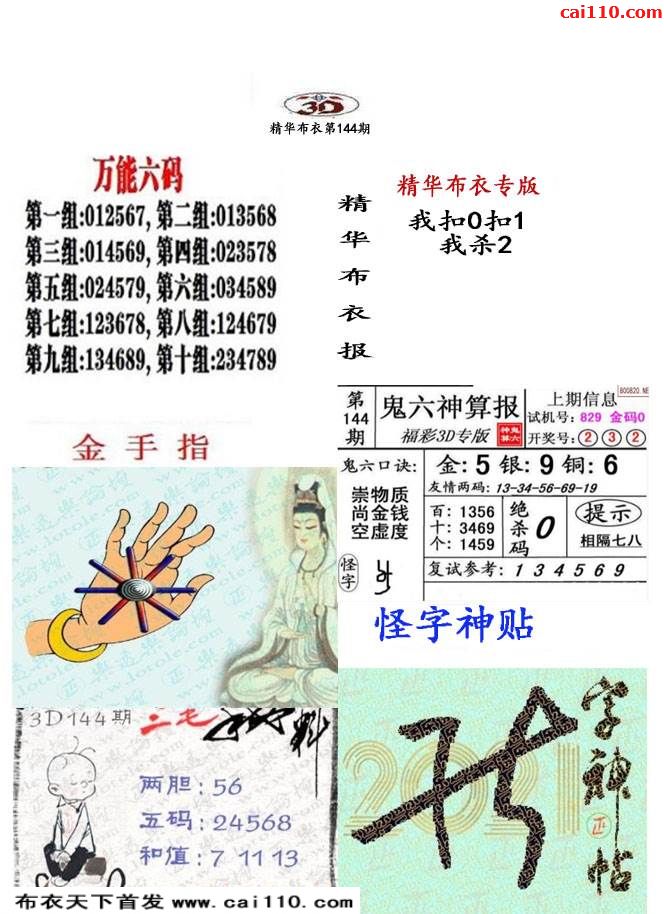 cai110.com
3D
精华布衣第144期
万能六码
第一组:012567, 第二组:013568
第三组:014569, 第四组:023578
第五组:024579, 第六组:034589
第七组:123678, 第八组:124679
第九组:134689, 第十组:234789
精华布衣报
精华布衣专版
我扣0扣1
我杀2
金手指
800820.NE
第144期
鬼六神算报
福彩3D专版
上期信息
试机号: 829 金码0
开奖号: 2 3 2
鬼六口诀:
崇物质
尚金钱
空虚度
怪字
金: 5 银: 9 铜: 6
友情两码: 13-34-56-69-19
百: 1356
十: 3469
个: 1459
绝杀码 0
提示
相隔七八
复试参考: 1 3 4 5 6 9
怪字神贴
3D144期
三毛
两胆: 56
五码: 24568
和值: 7 11 13
2021
字神帖
正
布衣天下首发 www.cai110.com